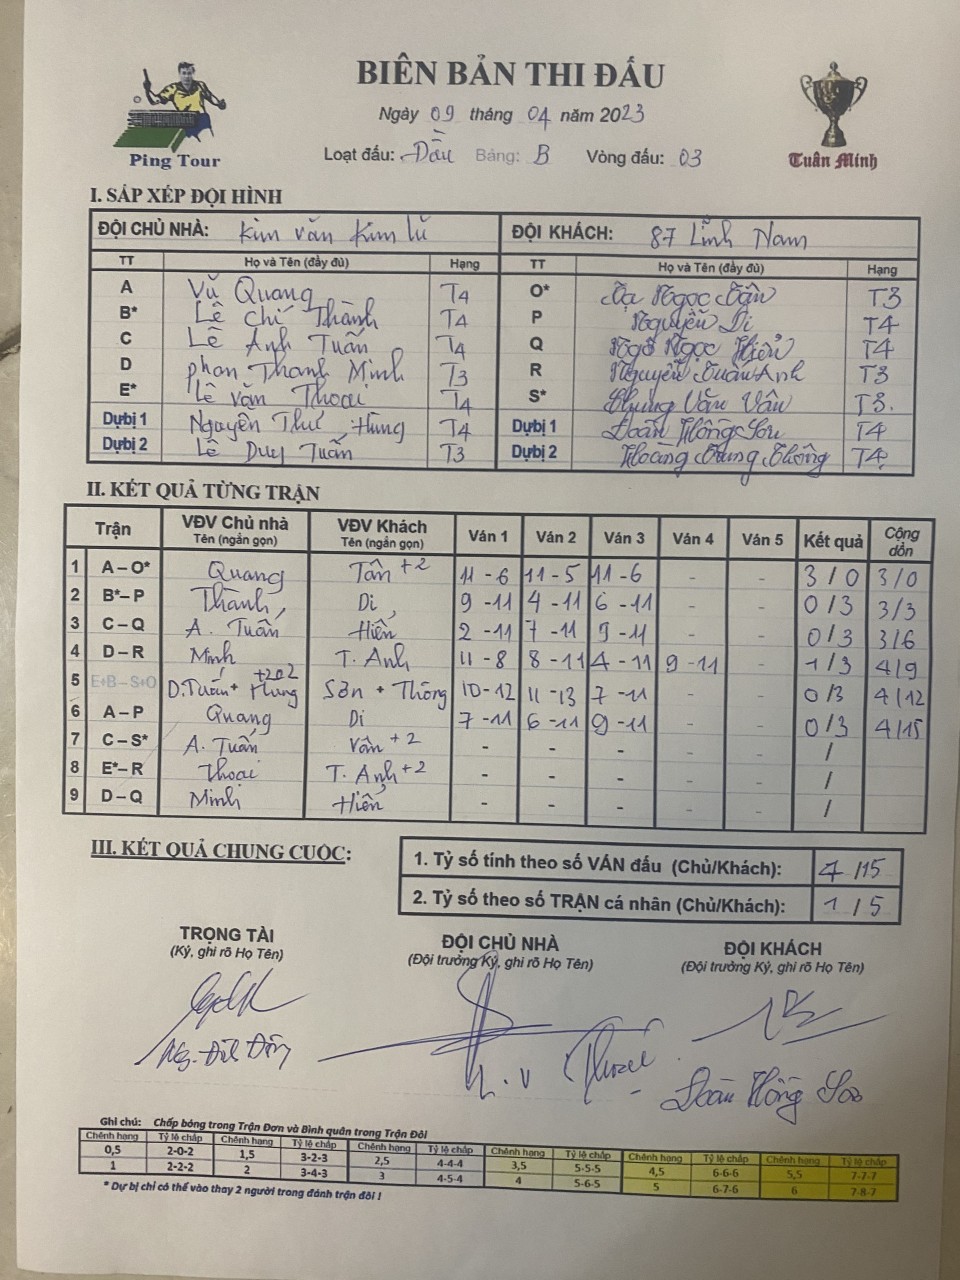 BIÊN BẢN THI ĐẤU
Ngày 09 tháng 04 năm 2023
Ping Tour
Loạt đấu: Đầu Bảng: B Vòng đấu: 03
Tuân Minh
I. SẮP XẾP ĐỘI HÌNH
ĐỘI CHỦ NHÀ: Kim Văn Kim Lũ ĐỘI KHÁCH: 87 Lĩnh Nam
TT Họ và Tên (đầy đủ) Hạng TT Họ và Tên (đầy đủ) Hạng
A Vũ Quang T4 O* Tạ Ngọc Tân T3
B* Lê Chí Thành T4 P Nguyễn Di T4
C Lê Anh Tuấn T4 Q Ngô Ngọc Hiển T4
D Phan Thanh Minh T3 R Nguyễn Tuấn Anh T3
E* Lê Văn Thoại T4 S* Phùng Văn Vân T3.
Dựbị 1 Nguyễn Thế Hùng T4 Dựbị 1 Đoàn Hồng Sơn T4
Dựbị 2 Lê Duy Tuấn T3 Dựbị 2 Hoàng Trung Thông T4
II. KẾT QUẢ TỪNG TRẬN
Trận VĐV Chủ nhà Tên (ngắn gọn) VĐV Khách Tên (ngắn gọn) Ván 1 Ván 2 Ván 3 Ván 4 Ván 5 Kết quả Cộng dồn
1 A – O* Quang Tân +2 11 - 6 11 - 5 11 - 6 - - 3 / 0 3/0
2 B* – P Thành Di 9 - 11 4 - 11 6 - 11 - - 0 / 3 3/3
3 C – Q A. Tuấn Hiển 2 - 11 7 - 11 9 - 11 - - 0 / 3 3/6
4 D – R Minh T. Anh 11 - 8 8 - 11 4 - 11 9 - 11 - 1 / 3 4/9
5 E+B – S+O D.Tuấn + Hùng +202 Sơn + Thông 10 - 12 11 - 13 7 - 11 - - 0 / 3 4/12
6 A – P Quang Di 7 - 11 6 - 11 9 - 11 - - 0 / 3 4/15
7 C – S* A. Tuấn Vân +2 - - - - - /
8 E* – R Thoại T. Anh +2 - - - - - /
9 D – Q Minh Hiển - - - - - /
III. KẾT QUẢ CHUNG CUỘC:
1. Tỷ số tính theo số VÁN đấu (Chủ/Khách): 4 / 15
2. Tỷ số theo số TRẬN cá nhân (Chủ/Khách): 1 / 5
TRỌNG TÀI ĐỘI CHỦ NHÀ ĐỘI KHÁCH
(Ký, ghi rõ Họ Tên) (Đội trưởng Ký, ghi rõ Họ Tên) (Đội trưởng Ký, ghi rõ Họ Tên)
Đoàn Hồng Sơn
Ghi chú: Chấp bóng trong Trận Đơn và Bình quân trong Trận Đôi
Chênh hạng Tỷ lệ chấp Chênh hạng Tỷ lệ chấp Chênh hạng Tỷ lệ chấp Chênh hạng Tỷ lệ chấp Chênh hạng Tỷ lệ chấp Chênh hạng Tỷ lệ chấp
0,5 2-0-2 1,5 3-2-3 2,5 4-4-4 3,5 5-5-5 4,5 6-6-6 5,5 7-7-7
1 2-2-2 2 3-4-3 3 4-5-4 4 5-6-5 5 6-7-6 6 7-8-7
* Dự bị chỉ có thể vào thay 2 người trong đánh trận đôi !